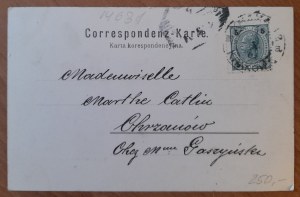 14681
Correspondenz-Karte.
Karta korespondencyjna.
Mademoiselle
Marthe Catlin
Chrzanów
Chez Mme Gaszyńska
250,-